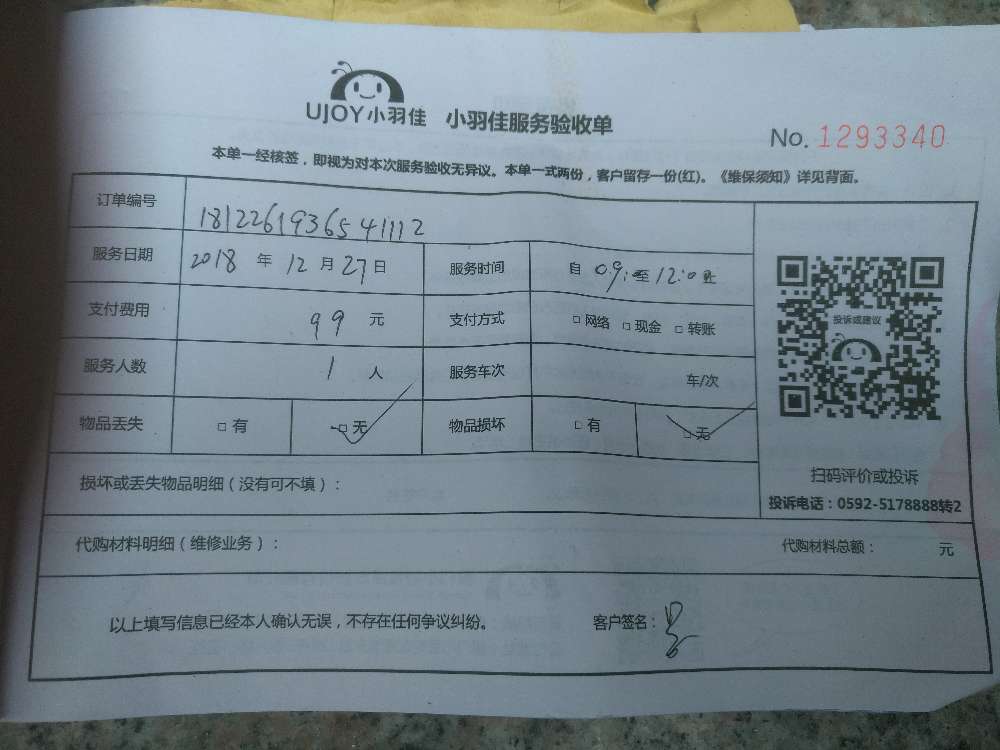 UJOY小羽佳 小羽佳服务验收单
No. 1293340
本单一经核签，即视为对本次服务验收无异议。本单一式两份，客户留存一份(红)。《维保须知》详见背面。
订单编号 181226193654 1112
服务日期 2018 年 12 月 27 日 服务时间 自 09: 至 12:0 止
支付费用 99 元 支付方式 □ 网络 □ 现金 □ 转账
服务人数 1 人 服务车次 车/次
物品丢失 □ 有 □ 无 物品损坏 □ 有 □ 无
投诉或建议
扫码评价或投诉
投诉电话：0592-5178888转2
损坏或丢失物品明细（没有可不填）：
代购材料明细（维修业务）： 代购材料总额： 元
以上填写信息已经本人确认无误，不存在任何争议纠纷。 客户签名：